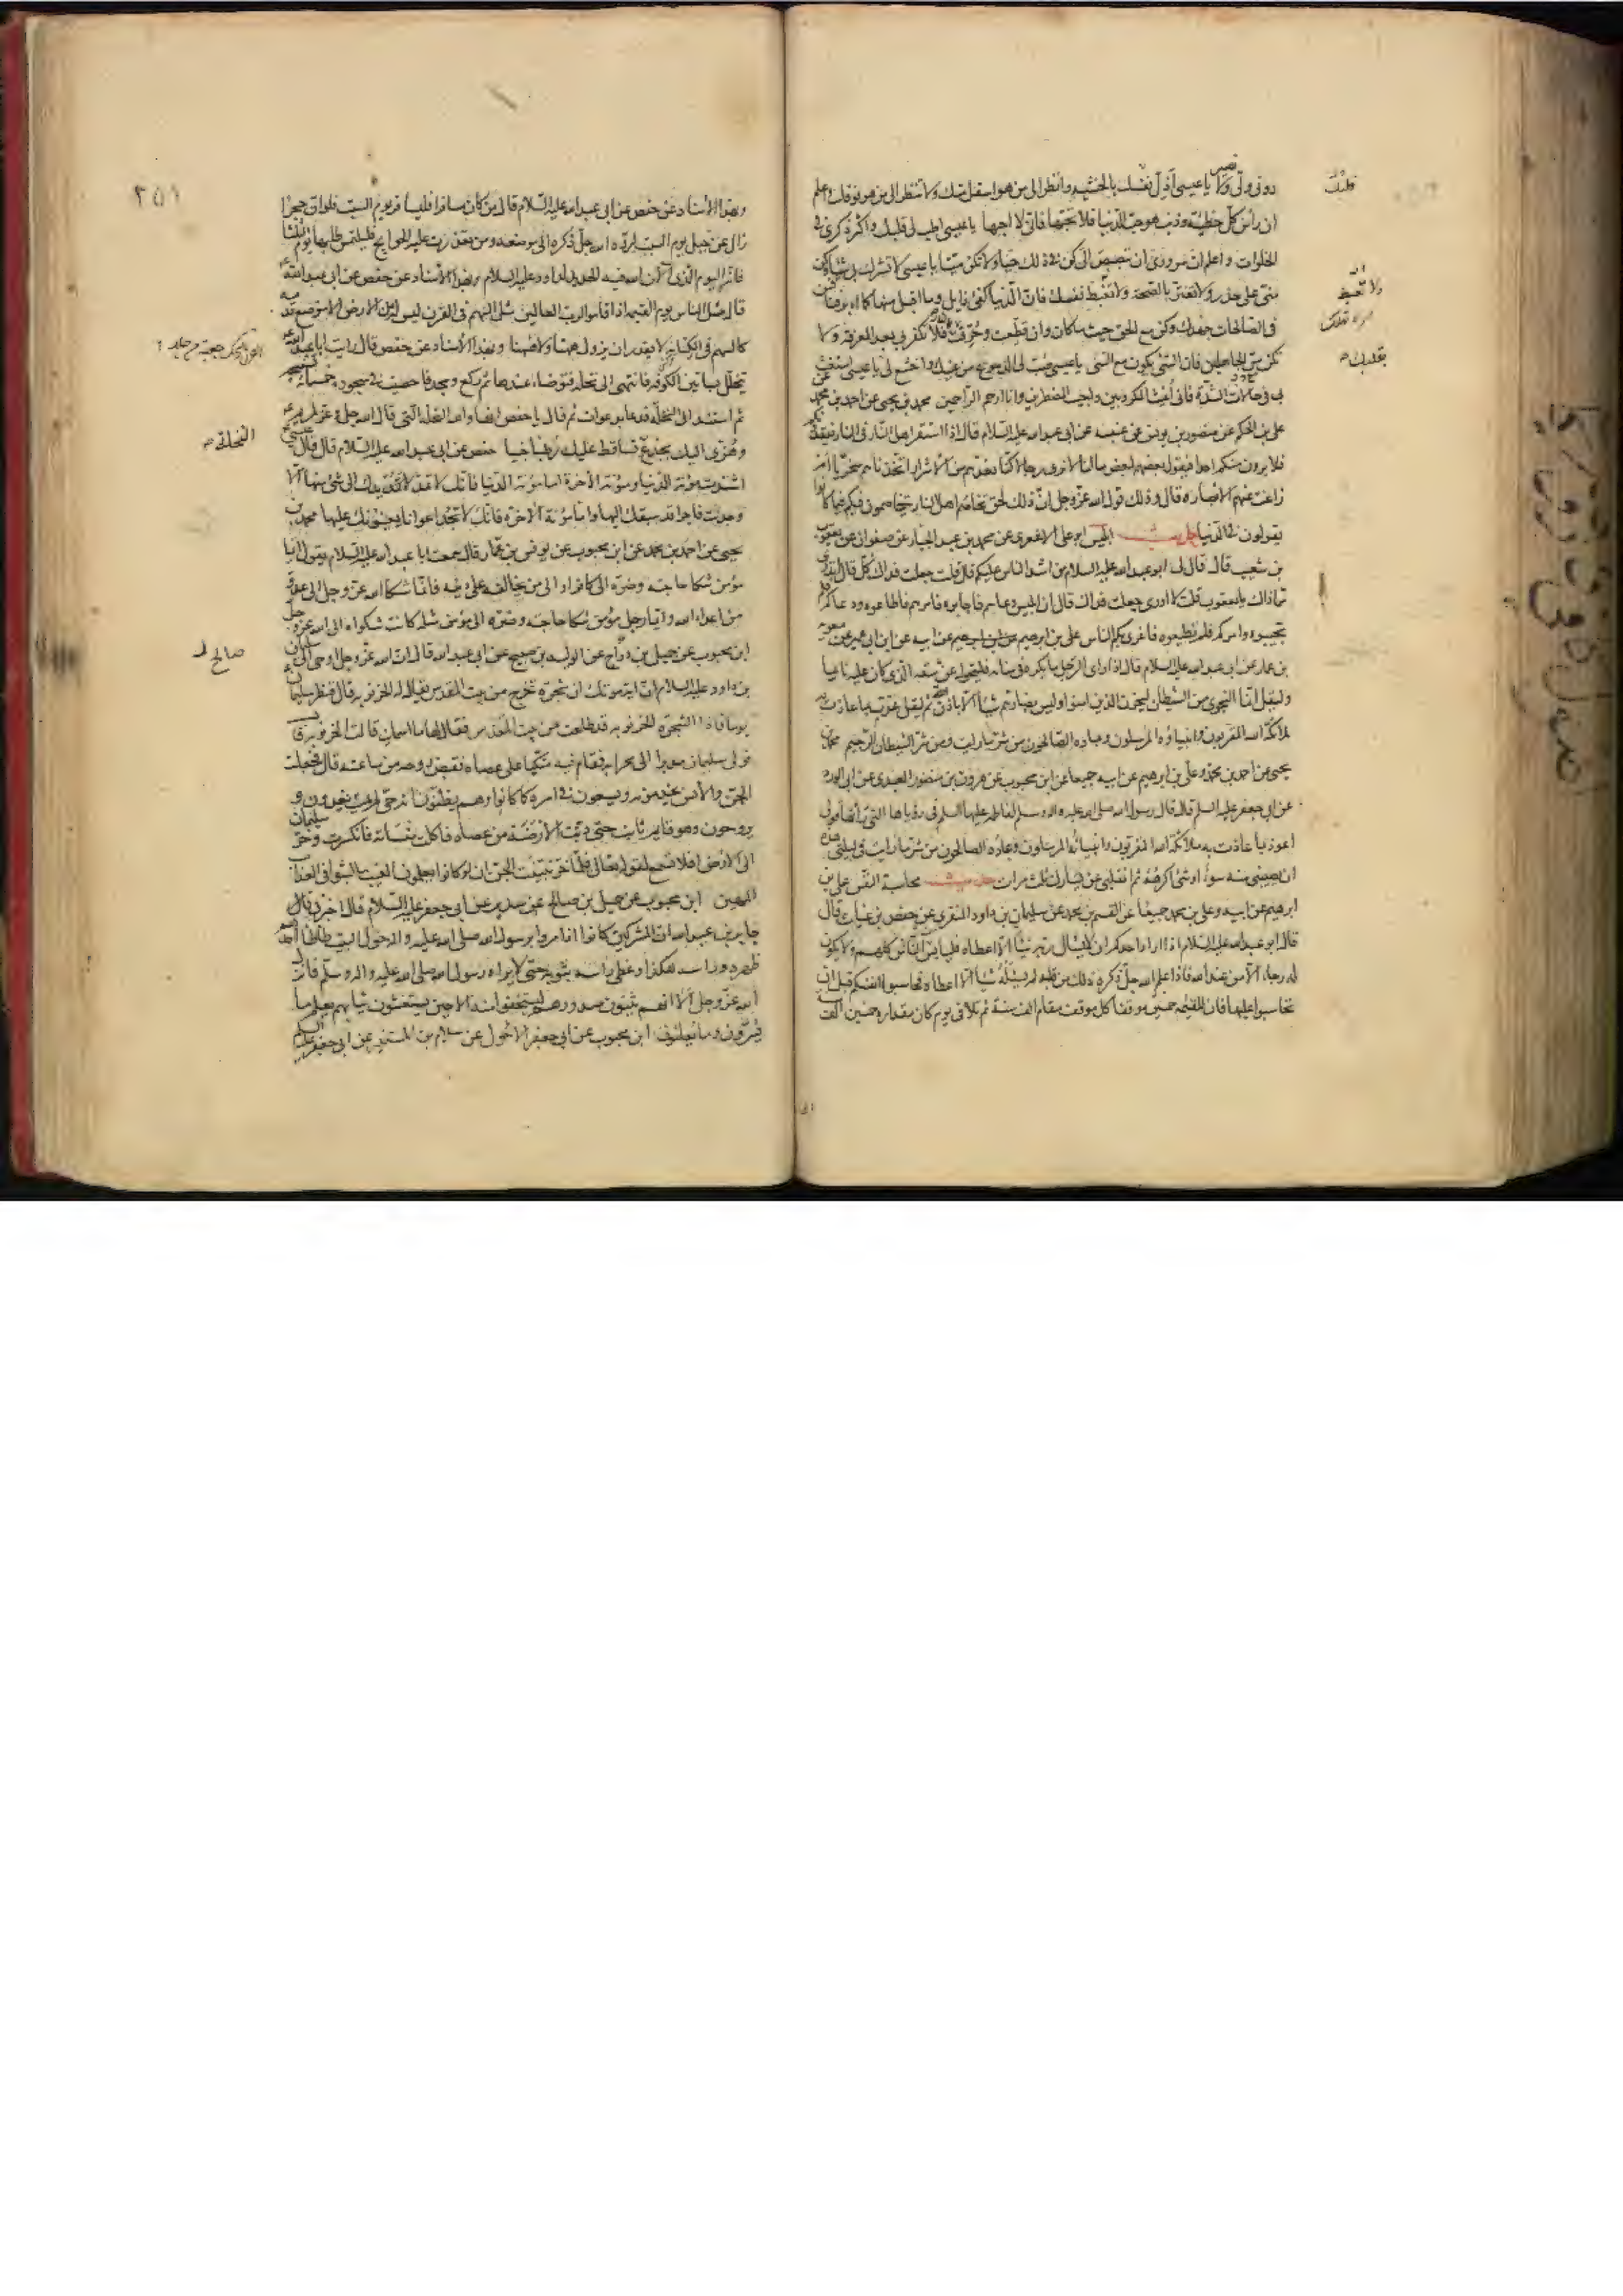 دوني ولي ونصير يا عيسى اذل نفسك بالخشية وانظر الى من هو اسفل منك ولا تنظر الى من هو فوقك واعلم
ان راس كل خطيئة وذنب هو حب الدنيا فلا تحبها فاني لا احبها يا عيسى اطب لي قلبك واكثر ذكري في
الخلوات واعلم ان سروري ان تبصبص الي كن في ذلك حيا ولا تكن ميتا يا عيسى لا تشرك بي شيئا وكن
مني على حذر ولا تغتر بالصحة ولا تغبط نفسك فان الدنيا كفئ زايل وما اقبل منها كما ادبر فنافس
في الصالحات جهدك وكن مع الحق حيث ما كان وان قطعت وحرقت بالنار فلا تكفر بي بعد المعرفة ولا
تكن من الجاهلين فان الشئ يكون مع الشئ يا عيسى صب لي الدموع من عينيك واخشع لي يا عيسى استغث
بي في حالات الشدة فاني اغيث المكروبين واجيب المضطرين وانا ارحم الراحمين محمد بن يحيى عن احمد بن محمد عن
علي بن الحكم عن منصور بن يونس عن عنبسة عن ابي عبد الله عليه السلام قال اذا استقر اهل النار في النار يفقدونكم
فلا يرون منكم احدا فيقول بعضهم لبعض مالنا لا نرى رجالا كنا نعدهم من الاشرار اتخذناهم سخريا ام
زاغت عنهم الابصار قال وذلك قول الله عز وجل ان ذلك لحق تخاصم اهل النار يتخاصمون فيكم فيما كانوا
يقولون في الدنيا حديث ابليس ابو علي الاشعري عن محمد بن عبد الجبار عن صفوان عن يعقوب
بن شعيب قال قال لي ابو عبد الله عليه السلام من اشد الناس عليكم قال قلت جعلت فداك كل قال اتدري
مم ذاك يا يعقوب قلت لا ادري جعلت فداك قال ان ابليس دعاهم فاجابوه فامرهم فاطاعوه ودعاكم فلم
تجيبوه وامركم فلم تطيعوه فاغرى بكم الناس علي بن ابرهيم عن ابيه عن ابن ابي عمير عن معوية
بن عمار عن ابي عبد الله عليه السلام قال اذا راى الرجل ما يكره في منامه فليتحول عن شقه الذي كان عليه نائما
وليقل انما النجوى من الشيطان ليحزن الذين امنوا وليس بضارهم شيئا الا باذن الله ثم ليقل عذت بما عاذت به
ملائكة الله المقربون وانبياؤه المرسلون وعباده الصالحون من شر ما رايت ومن شر الشيطان الرجيم محمد بن
يحيى عن احمد بن محمد وعلي بن ابرهيم عن ابيه جميعا عن ابن محبوب عن هرون بن منصور العبدي عن ابي الورد
عن ابي جعفر عليه السلم قال قال رسول الله صلى الله عليه واله وسلم لفاطمة عليها السلم في رؤياها التي راتها قولي
اعوذ بما عاذت به ملائكة الله المقربون وانبيائه المرسلون وعباده الصالحون من شر ما رايت في ليلتي هذه
ان يصيبني منه سوء او شئ اكرهه ثم انقلبي عن يسارك ثلث مرات حديث محاسبة النفس علي بن
ابرهيم عن ابيه وعلي بن محمد جميعا عن القسم بن محمد عن سليمان بن داود المنقري عن حفص بن غياث قال
قال ابو عبد الله عليه السلام اذا اراد احدكم ان لا يسال ربه شيئا الا اعطاه فلييأس من الناس كلهم ولا يكون
له رجاء الا من عند الله فاذا علم الله جل ذكره ذلك من قلبه لم يسئله شيئا الا اعطاه فحاسبوا انفسكم قبل ان
تحاسبوا عليها فان للقيمة خمسين موقفا كل موقف مقام الف سنة ثم تلا في يوم كان مقداره خمسين الف سنة
قلبك
ولا تغبط
بقدبك
٢٥١
وبهذا الاسناد عن حفص عن ابي عبد الله عليه السلام قال من كان مسافرا فليسافر يوم السبت فلو ان حجرا
زال عن جبل يوم السبت لرده الله جل ذكره الى موضعه ومن تعذرت عليه الحوايج فليلتمس طلبها يوم الثلثا
فانه اليوم الذي الان الله فيه الحديد لداود عليه السلام وبهذا الاسناد عن حفص عن ابي عبد الله ع
قال مثل الناس يوم القيمة اذا قاموا لرب العالمين مثل السهم في القرب ليس له من الارض الا موضع قدمه
كالسهم في الكنانة لا يقدر ان يزول ههنا ولا ههنا وبهذا الاسناد عن حفص قال رايت ابا عبد الله ع
يتخلل بساتين الكوفة فانتهى الى نخلة فتوضا عندها ثم ركع وسجد فاحصيت في سجوده خمسمائة تسبيحة
ثم استند الى النخلة فدعا بدعوات ثم قال يا حفص انها والله النخلة التي قال الله جل وعز لمريم ع
وهزي اليك بجذع النخلة تساقط عليك رطبا جنيا حفص عن ابي عبد الله عليه السلام قال قال عيسى ع
اشتدت مؤنة الدنيا ومؤنة الاخرة اما مؤنة الدنيا فانك لا تمد يدك الى شئ منها الا
وجدت فاجرا قد سبقك اليها واما مؤنة الاخرة فانك لا تجد اعوانا يعينونك عليها محمد بن
يحيى عن احمد بن محمد عن ابن محبوب عن يونس بن عمار قال سمعت ابا عبد الله عليه السلام يقول ايما
مؤمن شكا حاجته وضره الى كافر او الى من يخالفه على دينه فانما شكا الله عز وجل الى عدو
من اعداء الله وايما رجل مؤمن شكا حاجته وضره الى مؤمن مثله كانت شكواه الى الله عز وجل
ابن محبوب عن جميل بن دراج عن الوليد بن صبيح عن ابي عبد الله قال ان الله عز وجل اوحى الى سليمان
بن داود عليه السلام ان اية موتك ان شجرة تخرج من بيت المقدس يقال لها الخرنوبة قال فنظر سليمان
يوما فاذا الشجرة الخرنوبة قد طلعت من بيت المقدس فقال لها ما اسمك قالت الخرنوبة قال
فولى سليمان مدبرا الى محرابه فقام فيه متكيا على عصاه فقبض روحه من ساعته قال فجعلت
الجن والانس يخدمونه ويسعون في امره كما كانوا وهم يظنون انه حي لم يمت يغدون و
يروحون وهو قائم ثابت حتى دبت الارضة من عصاه فاكلت منساته فانكسرت وخر سليمان
الى الارض افلا تسمع لقوله تعالى فلما خر تبينت الجن ان لو كانوا يعلمون الغيب ما لبثوا في العذاب
المهين ابن محبوب عن جميل بن صالح عن سدير عن ابي جعفر عليه السلام قال اخبرني
جابر بن عبد الله ان المشركين كانوا اذا مروا برسول الله صلى الله عليه واله حول البيت طاطا احدهم
ظهره وراسه هكذا وغطى راسه بثوبه حتى لا يراه رسول الله صلى الله عليه واله وسلم فانزل
الله عز وجل الا انهم يثنون صدورهم ليستخفوا منه الا حين يستغشون ثيابهم يعلم ما
يسرون وما يعلنون ابن محبوب عن ابي جعفر الاحول عن سلام بن المستنير عن ابي جعفر عليه السلام
النخلة
صالح